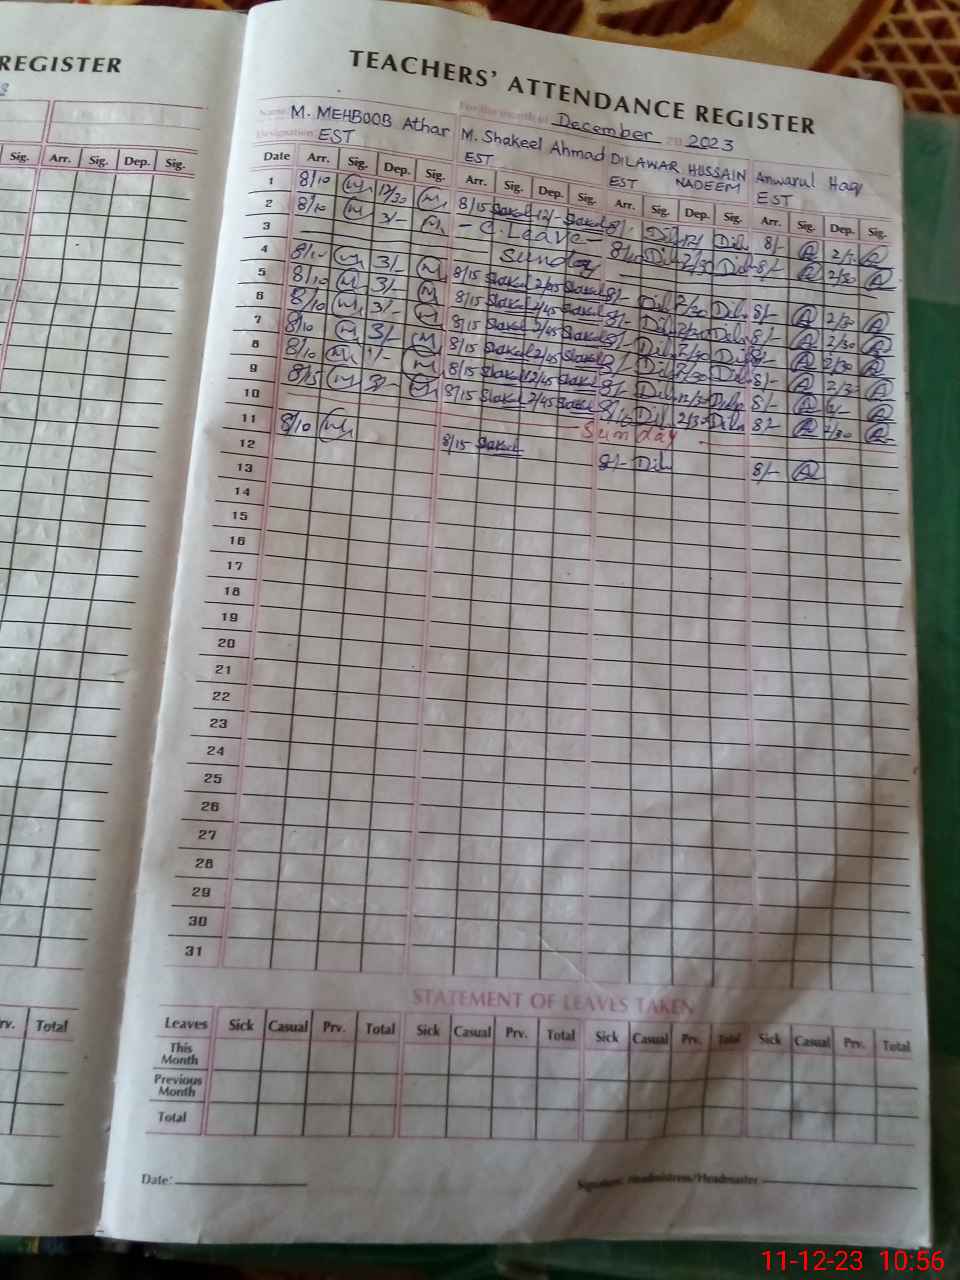 REGISTER
TEACHERS' ATTENDANCE REGISTER
Name: M. MEHBOOB Athar
For the month of December 2023
Designation: EST
M. Shakeel Ahmad
EST
DILAWAR HUSSAIN
EST NADEEM
Anwarul Haq
EST
Sig. Arr. Sig. Dep. Sig.
Date Arr. Sig. Dep. Sig. Arr. Sig. Dep. Sig. Arr. Sig. Dep. Sig. Arr. Sig. Dep. Sig.
1 8/10 12/30 8/15 Shakeel 12/- Shakeel 8/- Dil 12/- Dil 8/-
2 8/10 3/- - C. Leave - 8/10 Dil 2/30 Dil 8/- 2/30
3 Sunday
4 8/10 3/- 8/15 Shakeel 2/45 Shakeel 8/- Dil 2/30 Dil 8/- 2/30
5 8/10 3/- 8/15 Shakeel 2/45 Shakeel 8/- Dil 2/30 Dil 8/- 2/30
6 8/10 3/- 8/15 Shakeel 2/45 Shakeel 8/- Dil 2/30 Dil 8/- 2/30
7 8/10 3/- 8/15 Shakeel 2/45 Shakeel 8/- Dil 2/30 Dil 8/- 2/30
8 8/10 8/15 Shakeel 12/45 Shakeel 8/- Dil 12/30 Dil 8/-
9 8/15 8/15 Shakeel 2/45 Shakeel 8/- Dil 2/30 Dil 8/- 2/30
10 Sunday
11 8/10 8/15 Shakeel 8/- Dil 8/-
12
13
14
15
16
17
18
19
20
21
22
23
24
25
26
27
28
29
30
31
STATEMENT OF LEAVES TAKEN
rv. Total
Leaves Sick Casual Prv. Total Sick Casual Prv. Total Sick Casual Prv. Total Sick Casual Prv. Total
This Month
Previous Month
Total
Date:
Signature Headmistress/Headmaster
11-12-23 10:56